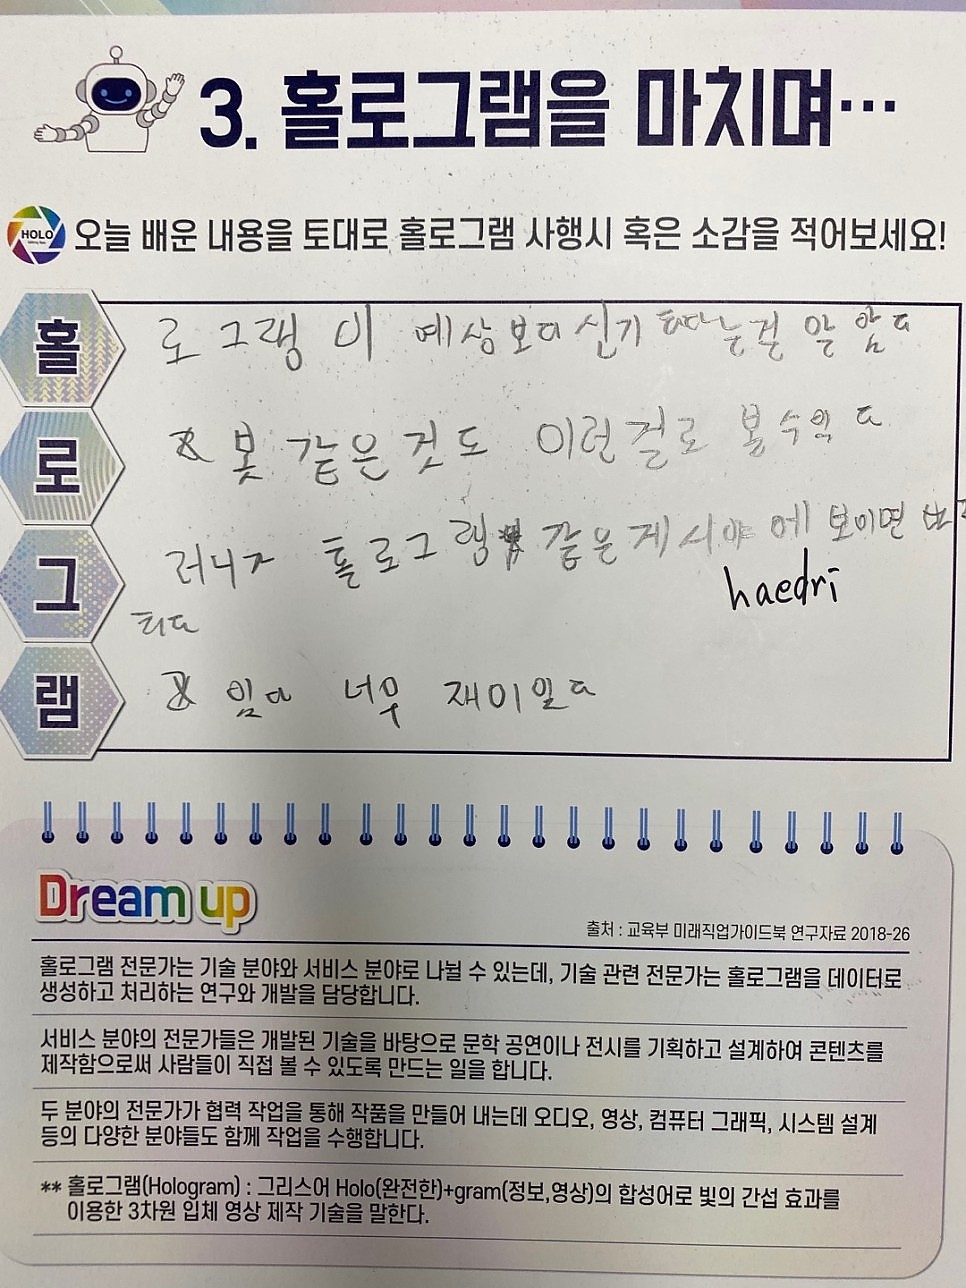 3. 홀로그램을 마치며…
HOLO
오늘 배운 내용을 토대로 홀로그램 사행시 혹은 소감을 적어보세요!
홀 로그램이 예상보다 신기 하다는걸 알 았다
로 봇 같은것도 이런걸로 볼수있다
그 러니가 홀로그램 같은게 시야에 보이면
haedri
램 있다 너무 재미있다
Dream up
출처 : 교육부 미래직업가이드북 연구자료 2018-26
홀로그램 전문가는 기술 분야와 서비스 분야로 나뉠 수 있는데, 기술 관련 전문가는 홀로그램을 데이터로
생성하고 처리하는 연구와 개발을 담당합니다.
서비스 분야의 전문가들은 개발된 기술을 바탕으로 문학 공연이나 전시를 기획하고 설계하여 콘텐츠를
제작함으로써 사람들이 직접 볼 수 있도록 만드는 일을 합니다.
두 분야의 전문가가 협력 작업을 통해 작품을 만들어 내는데 오디오, 영상, 컴퓨터 그래픽, 시스템 설계
등의 다양한 분야들도 함께 작업을 수행합니다.
** 홀로그램(Hologram) : 그리스어 Holo(완전한)+gram(정보,영상)의 합성어로 빛의 간섭 효과를
이용한 3차원 입체 영상 제작 기술을 말한다.